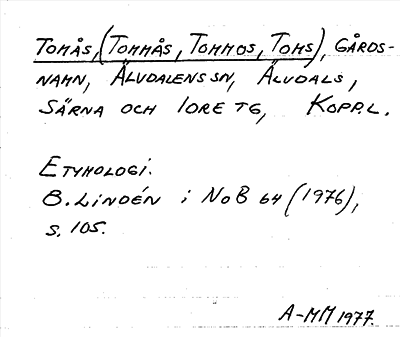 TOMÅS, (TOMMÅS, TOMMOS, TOMS), GÅRDS-
NAMN, ÄLVDALENS SN, ÄLVDALS,
SÄRNA OCH IDRE TG, KOPP.L.
ETYMOLOGI.
B. LINDÉN i NoB 64 (1976),
s. 105.
A-MM 1977.